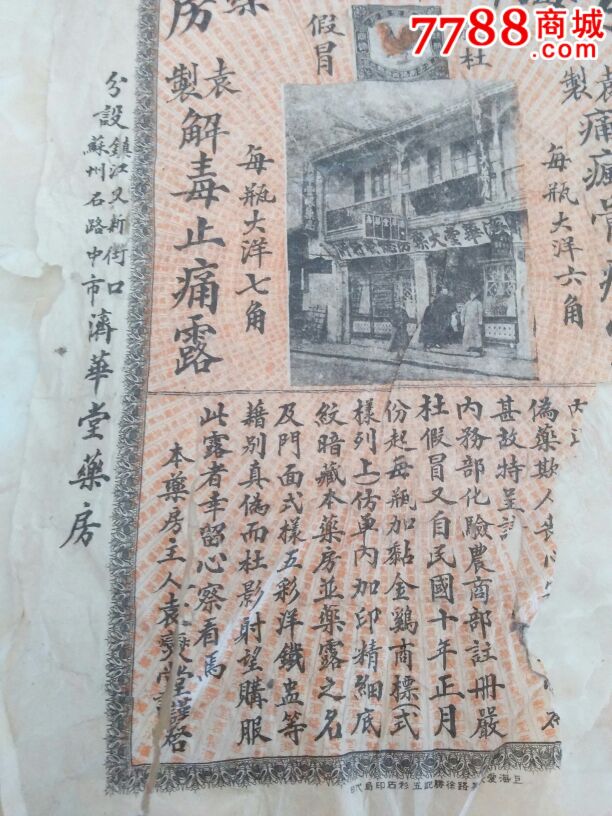 7788商城
.com
杜
假冒
藥
房
製
痛
每瓶大洋六角
每瓶大洋七角
袁製
解毒止痛露
濟華堂大藥
偽藥欺人喪心
甚故特呈請
內務部化驗農商部註冊嚴
杜假冒又自民國十年正月
份起每瓶加黏金鷄商標(式
樣列上)仿單內加印精細底
紋暗藏本藥房並藥露之名
及門面式樣五彩洋鐵盖等
藉別真偽而杜影射望購服
此露者幸留心察看焉
本藥房主人袁
堂謹啓
分設
鎮江又新街口
蘇州石路中市
濟華堂藥房
路徐勝記五彩石印局代印